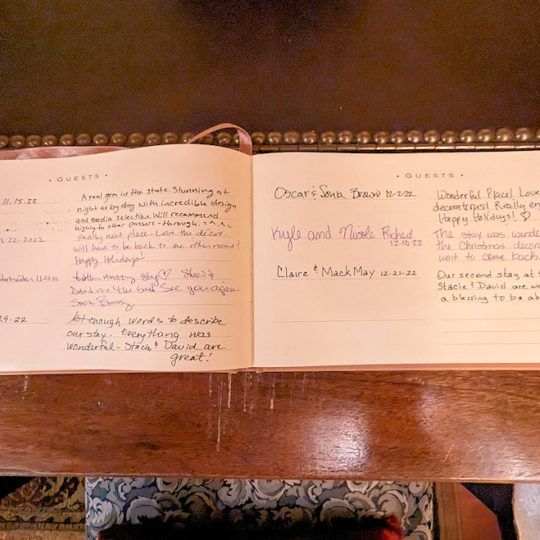 • GUESTS •
11.15.22
A real gem in the state. Stunning at
night or by day with incredible design
and media selection. Will recommend
highly to other passers-through.
22-2022
Really neat place! Love the decor.
will have to be back to see the other rooms!
Happy Holidays!
Stacie &
David are the best. See you again
Soon
9-22
Not enough words to describe
our stay. Everything was
wonderful - Stacie & David are
great!
• GUESTS •
Oscar & Sonia 12-2-22
Wonderful Place! Love
decorations! Really en
Happy Holidays! ♡
Kyle and Nicole 12.10.22
The stay was wonde
the Christmas decora
wait to come back
Claire & Mack May 12-21-22
Our second stay at t
Stacie & David are wo
a blessing to be ab